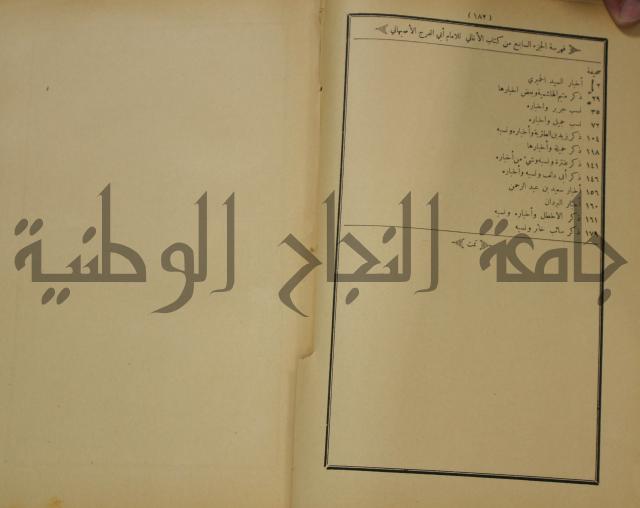 (١٨٢)
فهرسة الجزء السابع من كتاب الأغاني للامام أبي الفرج الأصبهاني
صحيفة
٢ أخبار السيد الحميري
٢٩ ذكر متيم الهاشمية وبعض اخبارها
٣٥ نسب جرير واخباره
٧٢ نسب جميل واخباره
١٠٤ ذكر يزيد بن الطثرية وأخباره ونسبه
١١٨ ذكر جميلة وأخبارها
١٤١ ذكر عنترة ونسبه وشيء من أخباره
١٤٦ ذكر أبي دلف ونسبه وأخباره
١٥٦ أخبار سعيد بن عبد الرحمن
١٦٠ أخبار البردان
١٦١ ذكر الأخطل وأخباره ونسبه
ذكر سائب خاثر ونسبه
تمت
جامعة النجاح الوطنية